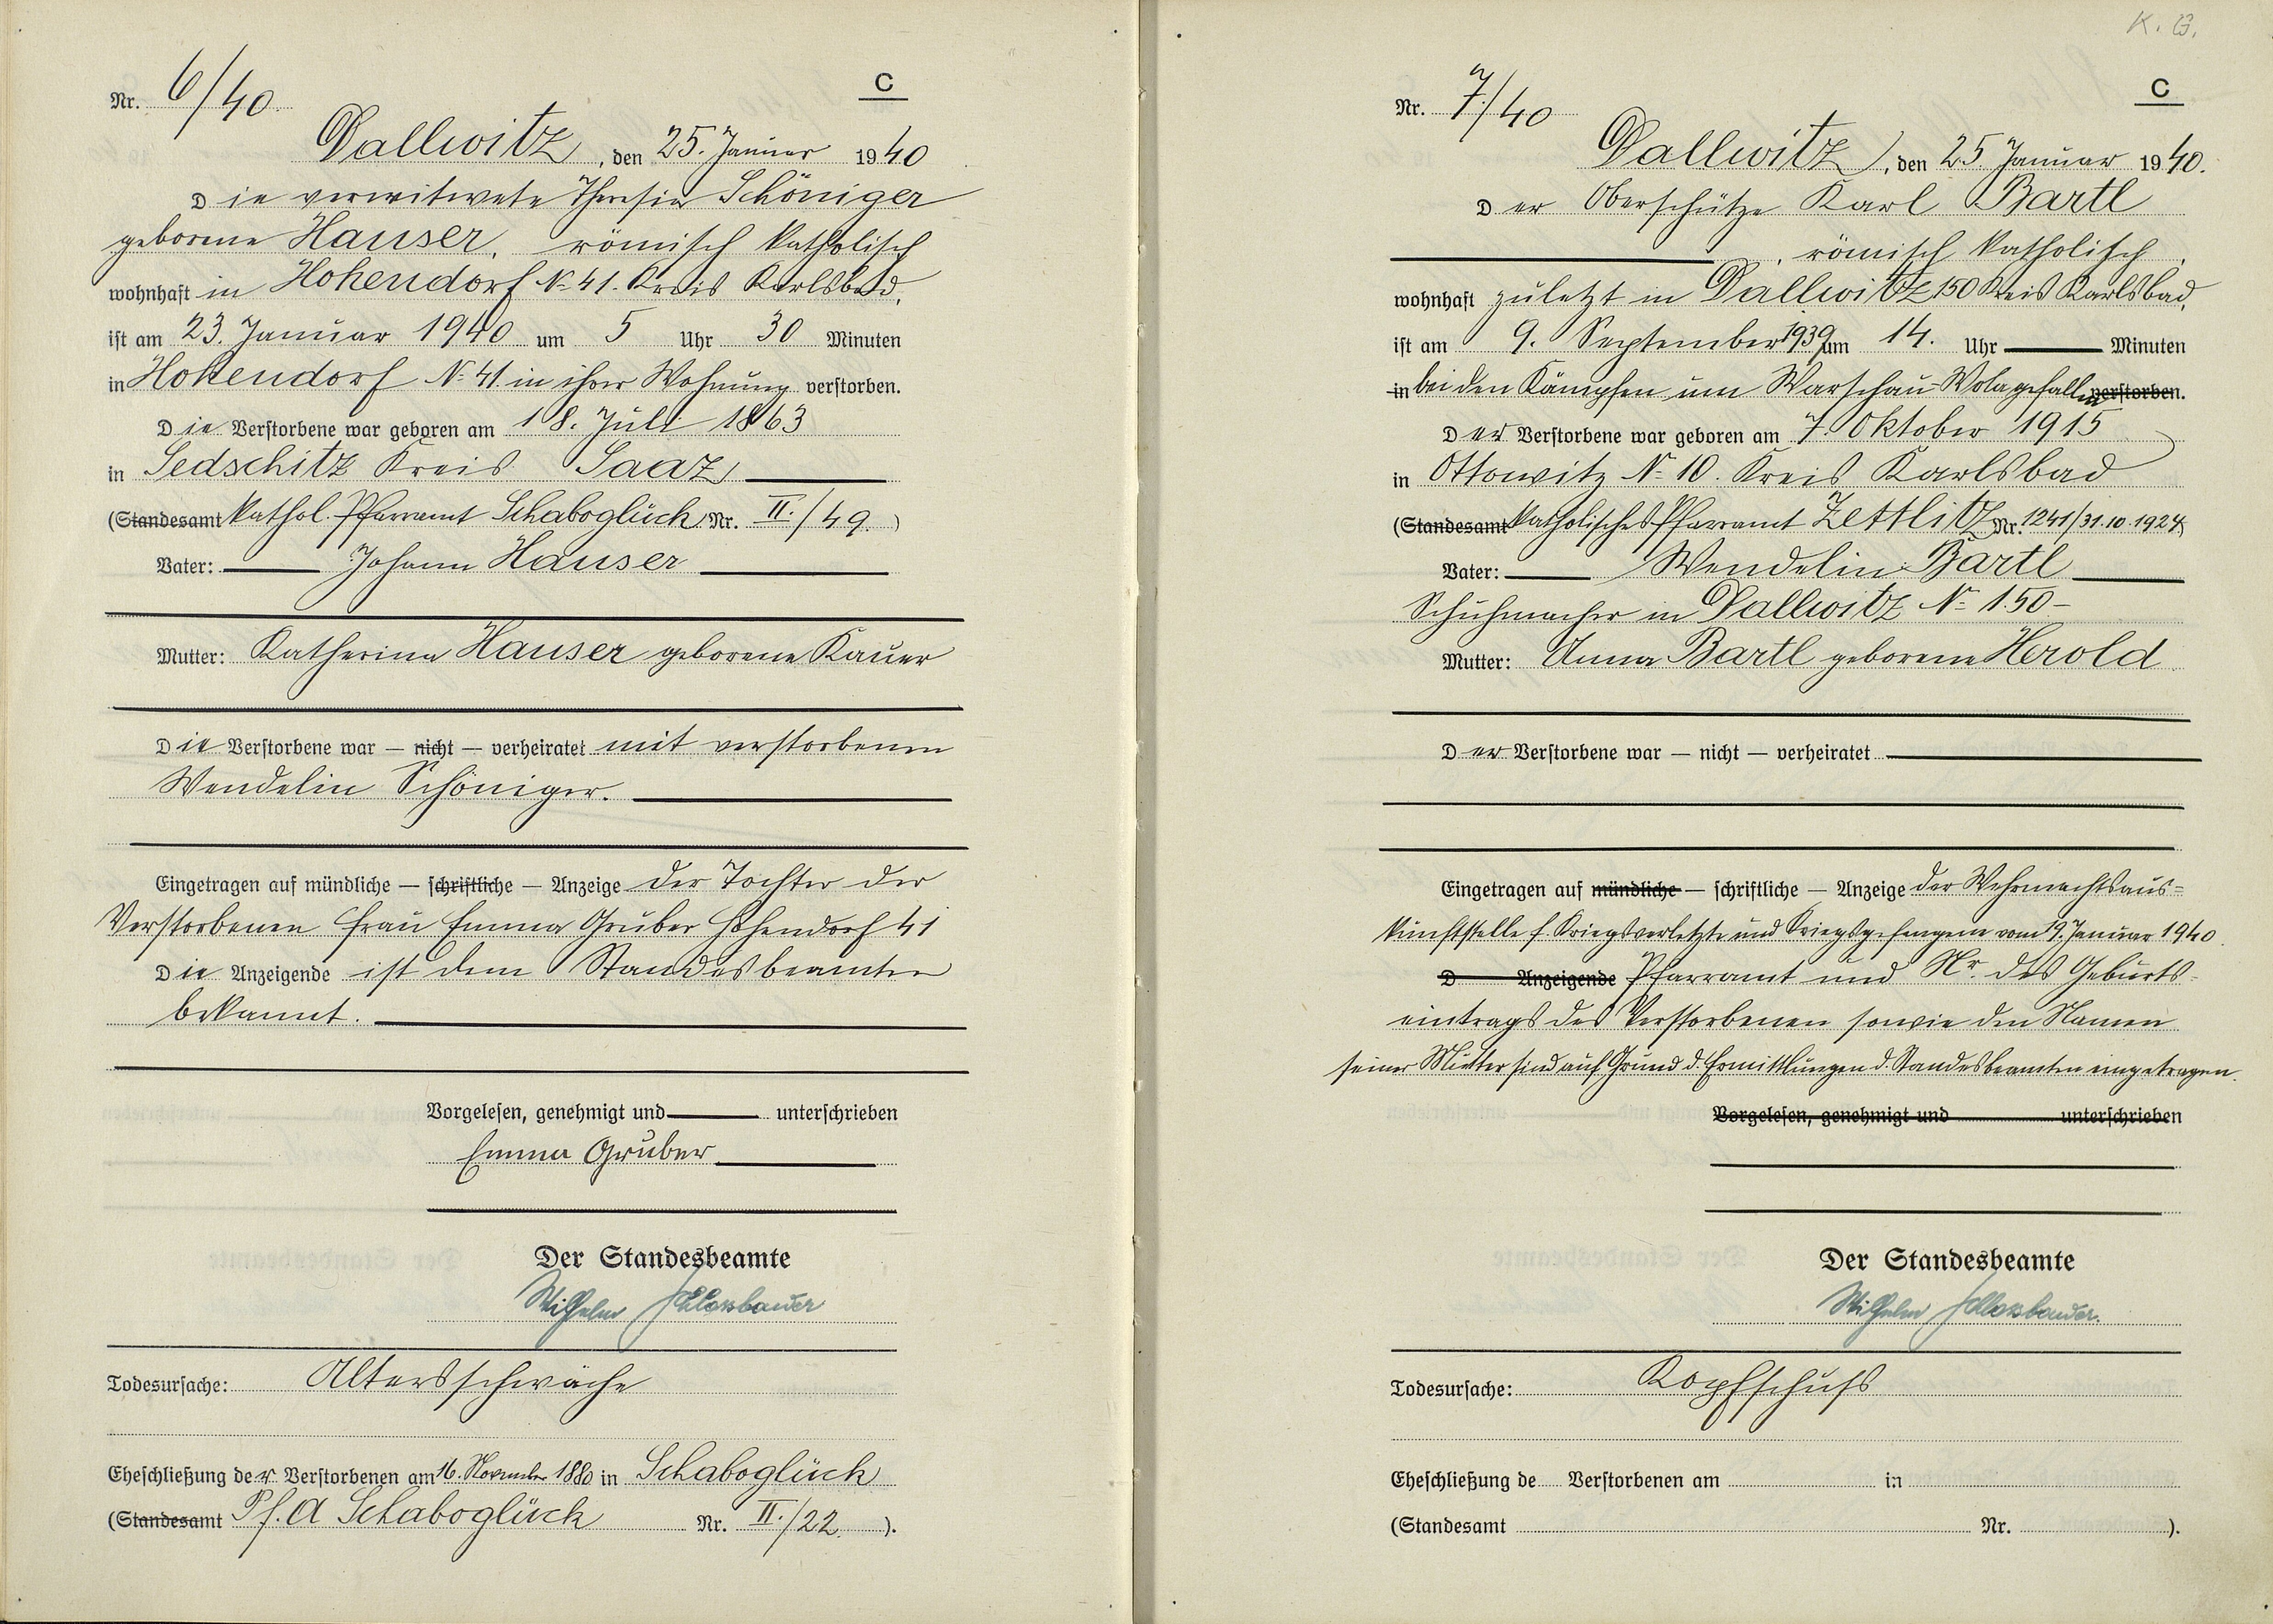 Nr. 6/40
C
Dallwitz, den 25. Januar 1940
Die verwitwete Theresia Schöniger
geborene Hauser, römisch katholisch
wohnhaft in Hohendorf № 41. Kreis Karlsbad,
ist am 23. Januar 1940 um 5 Uhr 30 Minuten
in Hohendorf № 41 in ihrer Wohnung verstorben.
Die Verstorbene war geboren am 18. Juli 1863
in Sedschitz Kreis Saaz
(Standesamt kathol. Pfarramt Schaboglück Nr. II./49.)
Vater: Johann Hauser
Mutter: Katherina Hauser geborene Kauer
Die Verstorbene war — nicht — verheiratet mit verstorbenen
Wendelin Schöniger.
Eingetragen auf mündliche — schriftliche — Anzeige der Tochter der
Verstorbenen Frau Emma Gruber Hohendorf 41
Die Anzeigende ist dem Standesbeamten
bekannt.
Vorgelesen, genehmigt und unterschrieben
Emma Gruber
Der Standesbeamte
Wilhelm Schlossbauer
Todesursache: Altersschwäche
Eheschließung der Verstorbenen am 16. November 1880 in Schaboglück
(Standesamt Pf. A Schaboglück Nr. II./22.).
K. B.
Nr. 7./40
C
Dallwitz, den 25. Januar 1940.
Der Oberschütze Karl Bartl
, römisch katholisch,
wohnhaft zuletzt in Dallwitz 150 Kreis Karlsbad,
ist am 9. September 1939 um 14. Uhr Minuten
in bei den Kämpfen um Warschau-Wola gefallen verstorben.
Der Verstorbene war geboren am 7. Oktober 1915
in Ottowitz № 10. Kreis Karlsbad
(Standesamt katholisches Pfarramt Zettlitz Nr. 1241/31.10.1924)
Vater: Wendelin Bartl
Schuhmacher in Dallwitz № 150-
Mutter: Anna Bartl geborene Herold
Der Verstorbene war — nicht — verheiratet
Eingetragen auf mündliche — schriftliche — Anzeige der Wehrmachtsaus=
kunftstelle f. Kriegsverletzte und Kriegsgefangene vom 19. Januar 1940.
D Anzeigende Pfarramt und Nr. des Geburts-
eintrags des Verstorbenen sowie den Namen
seiner Mutter sind auf Grund d. Ermittlungen d. Standesbeamten eingetragen.
Vorgelesen, genehmigt und unterschrieben
Der Standesbeamte
Wilhelm Schlossbauer.
Todesursache: Kopfschuß
Eheschließung de Verstorbenen am in
(Standesamt Nr. ).